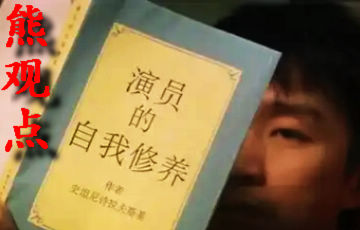 熊观点
演员
的
自我修养
作者
史坦尼特拉夫斯基